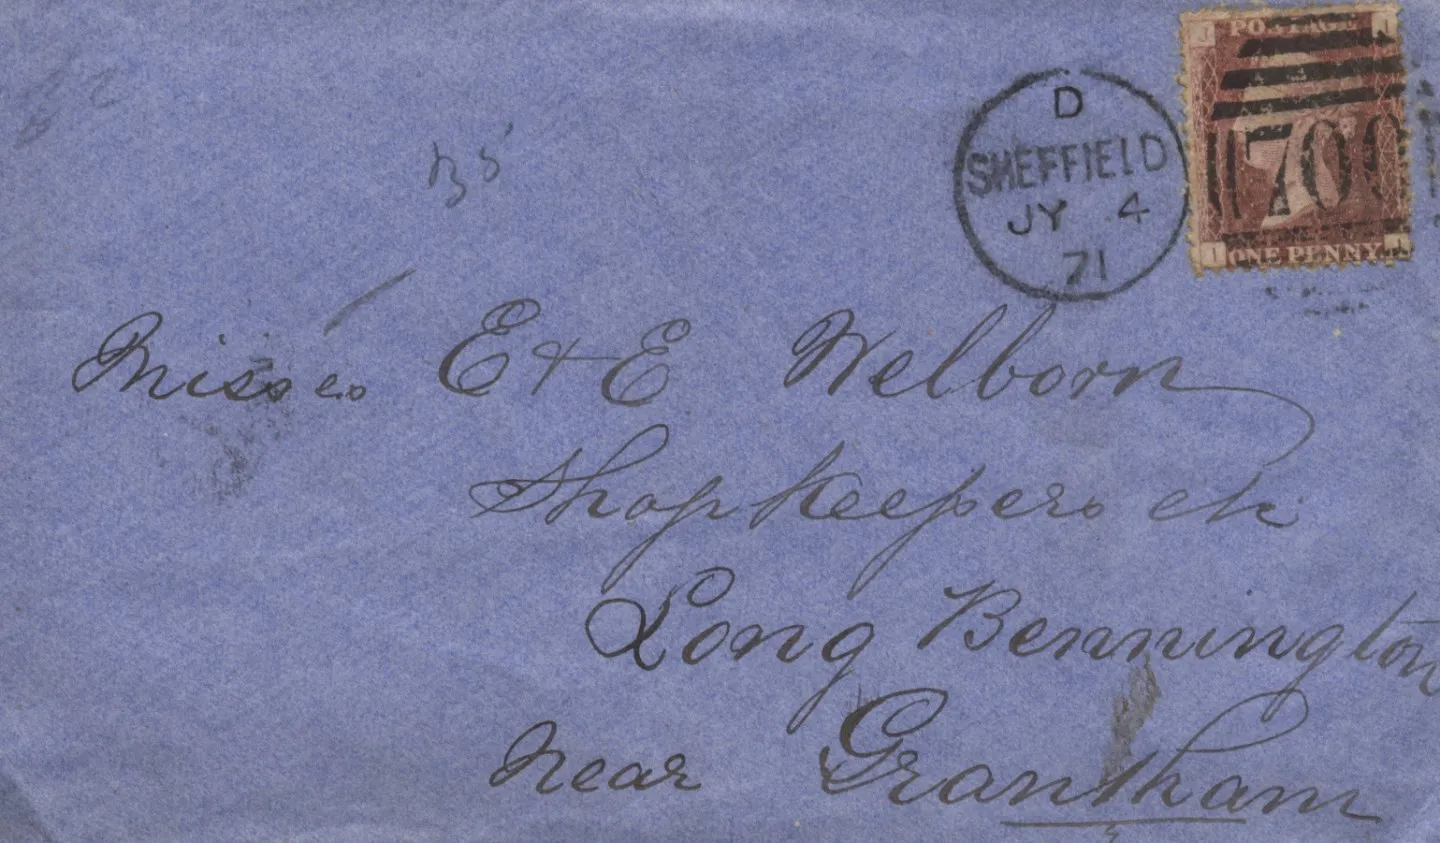 J POSTAGE I
D
SHEFFIELD
JY 4
71
700
I ONE PENNY J
Misses E & E Welborn
Shopkeepers etc
Long Bennington
Near Grantham